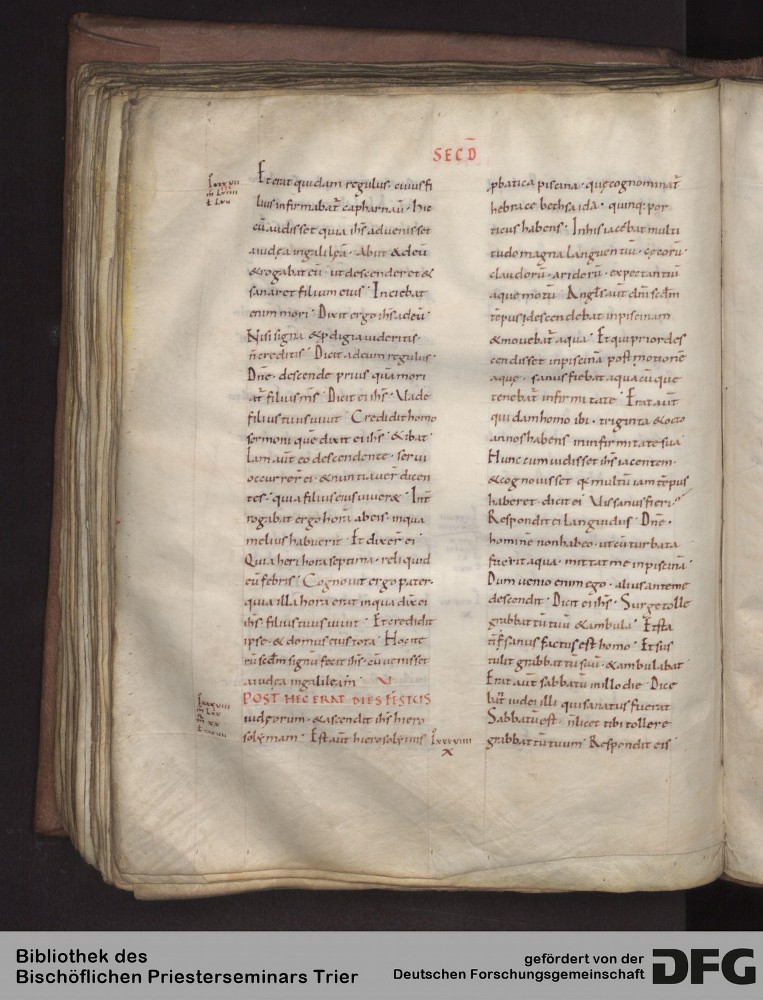 SECD̄
Et erat quidam regulus · cuius fi
lius infirmabat̄ capharnaū · hic
cū audisset quia ih̄s aduenisset
a iudęa in galilęā · Abiit & eū
& rogabat eū · ut descenderet &
sanaret filium eius · Incicbat
enim mori · Dixit ergo ih̄s ad eū ·
Nisi signa & pdigia uideritis ·
n̄ creditis · Dicit ad eum regulus ·
Dn̄e · descende prius quā mori
at̄ filius m̄s · Dicit ei ih̄s · Vade
filius tuus uiuit · Credidit homo
sermoni quē dixit ei ih̄s · & ibat ·
Iam aūt eo descendente · serui
occurrer̄ ei · & nuntiauer̄ dicen
tes · quia filius eius uiuer& · Int̄
rogabat ergo horā ab eis · in qua
melius habuerit · Et dixer̄ ei ·
Quia heri hora septima · reliquid
eū febris · Cognouit ergo pater ·
quia illa hora erat in qua dix̄ ei
ih̄s · filius tuus uiuit · Et credidit
ipse · & domus eius tota · Hoc ite
rū sc̄dm signū fecit ih̄s · cū uenisset
a iudęa in galileam ·
POST HEC ERAT DIES FESTUS
iudęorum · & ascendit ih̄s hiero
solymam · Est aūt hierosolymis
lxxxviii
x
pbatica piscina · quę cognominat̄
hebraice bethsaida · quinq; por
ticus habens · In his iacebat multi
tudo magna languentiū · cęcorū ·
claudorū · aridorū · expectantiū
aque motū · Angl̄s aūt dn̄i sc̄dm
tēpus descendebat in piscinam
& mouebat̄ aqua · Et qui prior des
cendisset in piscinā post motionē
aquę · sanus fiebat a quacūque
tenebat̄ infirmitate · Erat aūt
quidam homo ibi · triginta & octo
annos habens in infirmitate sua ·
Hunc cum uidisset ih̄s iacentem ·
& cognouisset q̄ multū iam tēpus
haberet · dicit ei · Vis sanus fieri ·
Respondit ei languidus · Dn̄e ·
hominē non habeo · ut cū turbata
fuerit aqua · mittat me in piscinā ·
Dum uenio enim ego · alius ante me
descendit · Dicit ei ih̄s · Surge tolle
grabbatū tuū & ambula · Et sta
tī sanus factus est homo · Et sus
tulit grabbatū suū · & ambulabat ·
Erat aūt sabbatū in illo die · Dice
bāt iudei illi qui sanatus fuerat ·
Sabbatū est · n̄ licet tibi tollere
grabbatū tuum · Respondit eis ·
Bibliothek des
Bischöflichen Priesterseminars Trier
gefördert von der
Deutschen Forschungsgemeinschaft
DFG